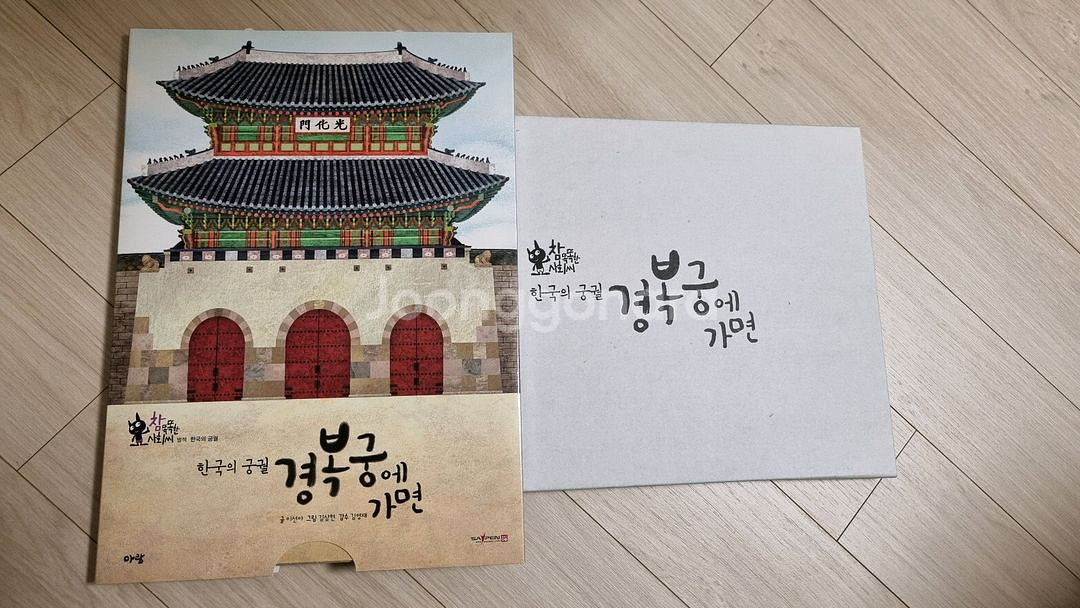 門化光
참
똑똑한
사회씨
별책 한국의 궁궐
한국의 궁궐
경복궁에
가면
글 이선아 그림 김상현 감수 김영재
SAYPEN
아람
참
똑똑한
사회씨
한국의 궁궐
경복궁에
가면
Joonggonara